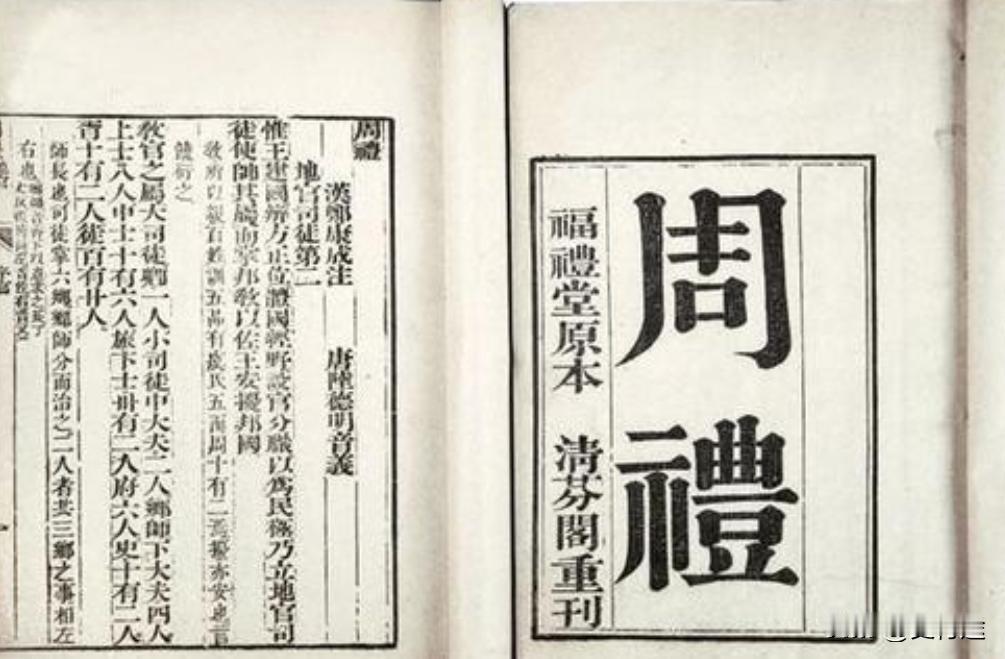 周禮
福禮堂原本 清芬閣重刊
周禮
漢鄭康成注 唐陸德明音義
地官司徒第二
惟王建國辨方正位體國經野設官分職以爲民極乃立地官司
徒使帥其屬而掌邦教以佐王安擾邦國
教所以親百姓訓五品有虞氏五而周十有二焉擾亦安也言
饒衍之
教官之屬大司徒卿一人小司徒中大夫二人鄉師下大夫四人
上士八人中士十有六人旅下士卅有二人府六人史十有二人
胥十有二人徒百有廿人
師長也司徒掌六鄉鄉師分而治之二人者共三鄉之事相左
右也